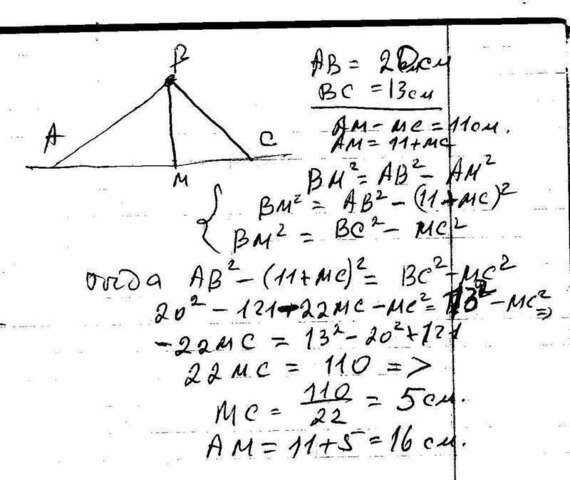 B
A
C
M
AB = 20 см
BC = 13 см
AM - MC = 11 см.
AM = 11 + MC
BM² = AB² - AM²
BM² = AB² - (11 + MC)²
BM² = BC² - MC²
откуда AB² - (11 + MC)² = BC² - MC²
20² - 121 - 22MC - MC² = 13² - MC² =>
-22MC = 13² - 20² + 121
22MC = 110 =>
MC = 110/22 = 5 см.
AM = 11 + 5 = 16 см.